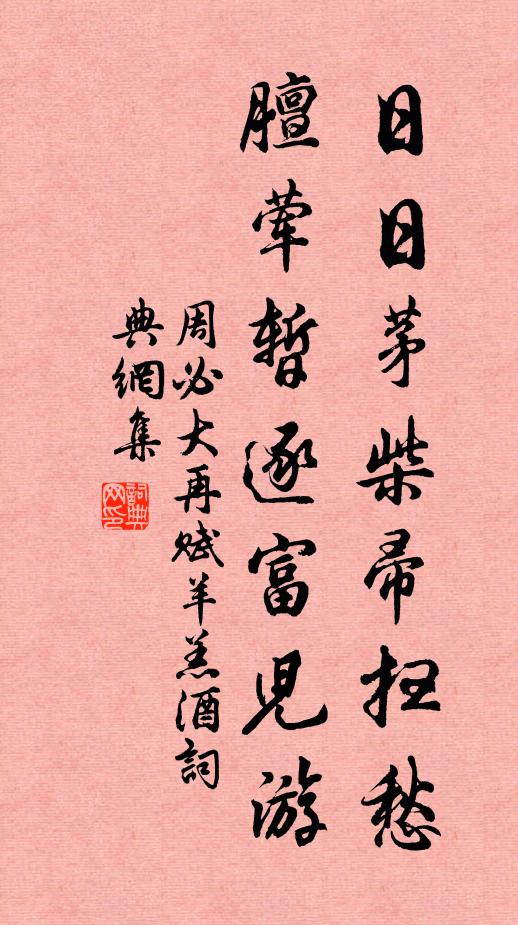 日日茅柴帚扫愁
膻荤暫逐富兒游
周必大再賦羊羔酒詞
典網集
詞典
网印